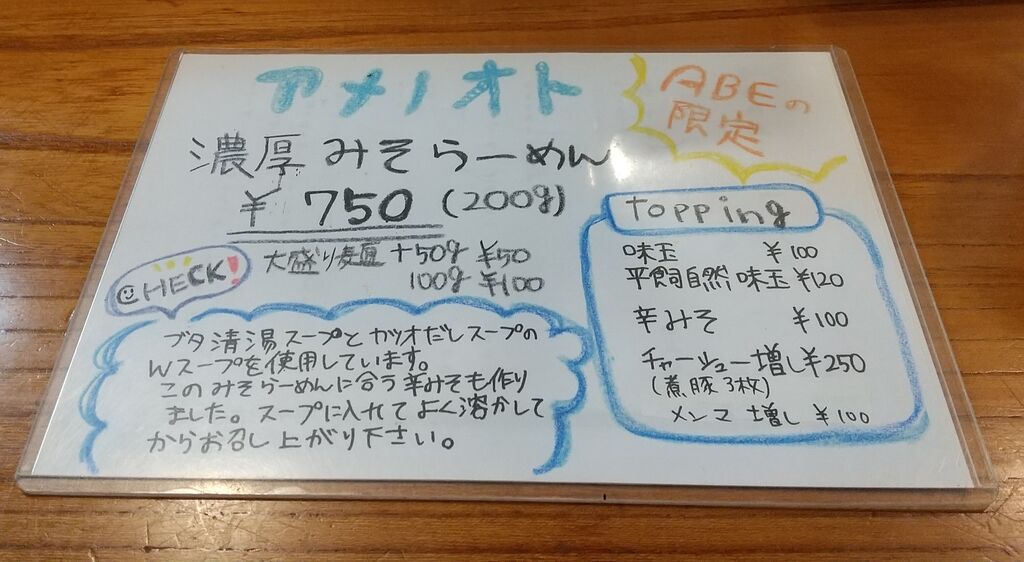 アメノオト
ABEの
限定
濃厚 みそらーめん
¥750 (200g)
大盛り麺 +50g ¥50
100g ¥100
CHECK!
ブタ清湯スープとカツオだしスープの
Wスープを使用しています。
このみそらーめんに合う辛みそも作り
ました。スープに入れてよく溶かして
からお召し上がり下さい。
topping
味玉 ¥100
平飼自然味玉 ¥120
辛みそ ¥100
チャーシュー増し ¥250
(煮豚3枚)
メンマ増し ¥100